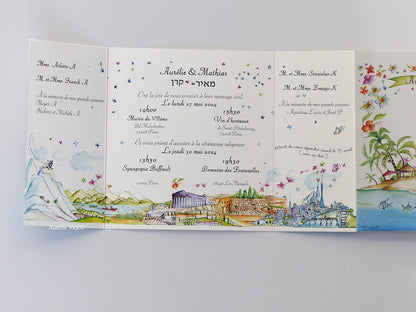 Mme. Arlette A
M. et Mme. Franck A
À la mémoire de mes grands-parents
Mayer A
Hubert et Mathilde A
Aurélie & Mathias
מאיר קרן
Ont la joie de vous convier à leur mariage civil
Le lundi 27 mai 2024
14h00
Mairie du VIIème
Bd Malesherbes,
75008 Paris
19h30
Vin d'honneur
de Saint-Pétersbourg
75008 Paris
Et vous prient d'assister à la cérémonie religieuse
Le jeudi 30 mai 2024
15h30
Synagogue Buffault
75009 Paris
19h30
Domaine des Fontenelles
M. et Mme. Stanislas K
M. et Mme. Zmago K
À la mémoire de mes grands-parents
Augustine, Luisa et José P